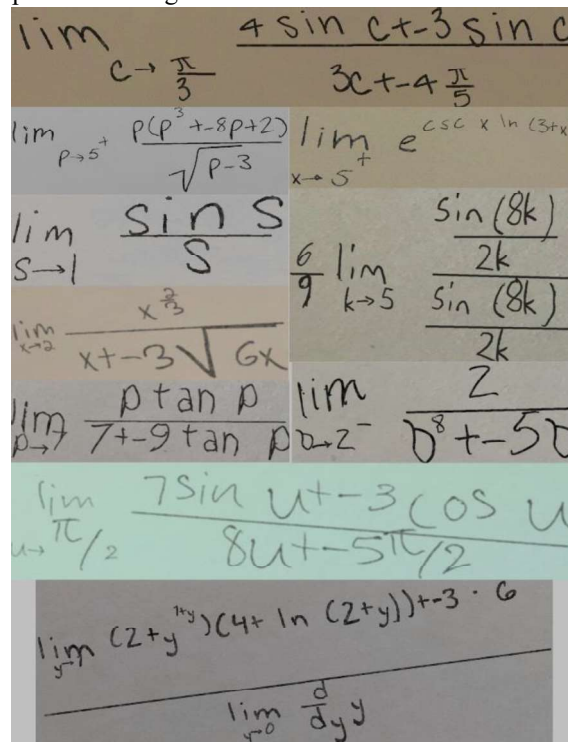 lim c→π/3 (4 sin c+-3 sin c)/(3c+-4 π/5)
lim p→5⁺ (p(p³+-8p+2))/√(p-3)
lim x→5⁺ e^(csc x ln (3+x
lim s→1 (sin s)/s
6/9 lim k→5 ((sin (8k))/(2k))/((sin (8k))/(2k))
lim x→2 (x^(2/3))/(x+-3√(6x))
lim p→7 (p tan p)/(7+-9 tan p)
lim 2⁻ 2/(⁸+-5
lim u→π/2 (7 sin u+-3 cos u)/(8u+-5π/2)
lim (2+y^(1+y))(4+ ln (2+y))+-3 · 6
lim y→0 d/dy y